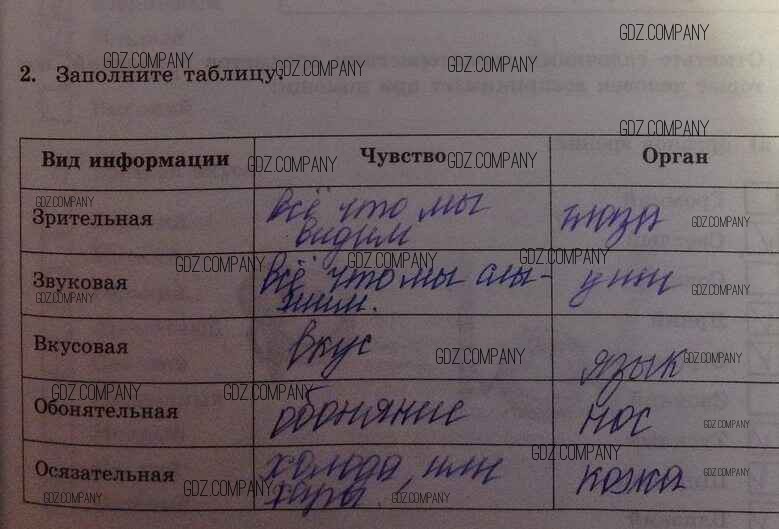 GDZ.COMPANY
GDZ.COMPANY GDZ.COMPANY GDZ.COMPANY
2. Заполните таблицу:
GDZ.COMPANY
Вид информации Чувство Орган
GDZ.COMPANY GDZ.COMPANY
GDZ.COMPANY
Зрительная всё что мы видим глаза
GDZ.COMPANY
GDZ.COMPANY GDZ.COMPANY GDZ.COMPANY
Звуковая всё что мы слы-
шим. уши
GDZ.COMPANY GDZ.COMPANY
Вкусовая вкус язык
GDZ.COMPANY GDZ.COMPANY
GDZ.COMPANY GDZ.COMPANY
Обонятельная обоняние нос
GDZ.COMPANY
GDZ.COMPANY
Осязательная холода или кожа
GDZ.COMPANY
GDZ.COMPANY GDZ.COMPANY GDZ.COMPANY